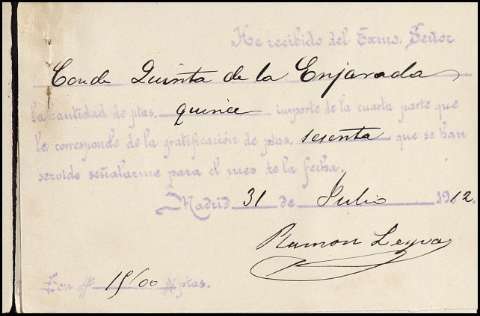 He recibido del Exmo. Señor
Conde Quinta de la Enjarada
la cantidad de ptas. quince importe de la cuarta parte que
le corresponde de la gratificación de ptas. sesenta que se han
servido señalarme para el mes de la fecha.
Madrid 31 de Julio 1912.
Ramon Leyva
Son # 15,00 # ptas.